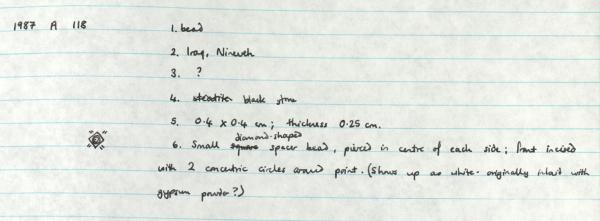 1987 A 118
1. bead
2. Iraq, Nineveh
3. ?
4. steatite black stone
5. 0.4 x 0.4 cm; thickness 0.25 cm.
diamond-shaped
6. Small square spacer bead, pierced in centre of each side; front incised
with 2 concentric circles around point. (Shows up as white - originally inlaid with
gypsum powder?)